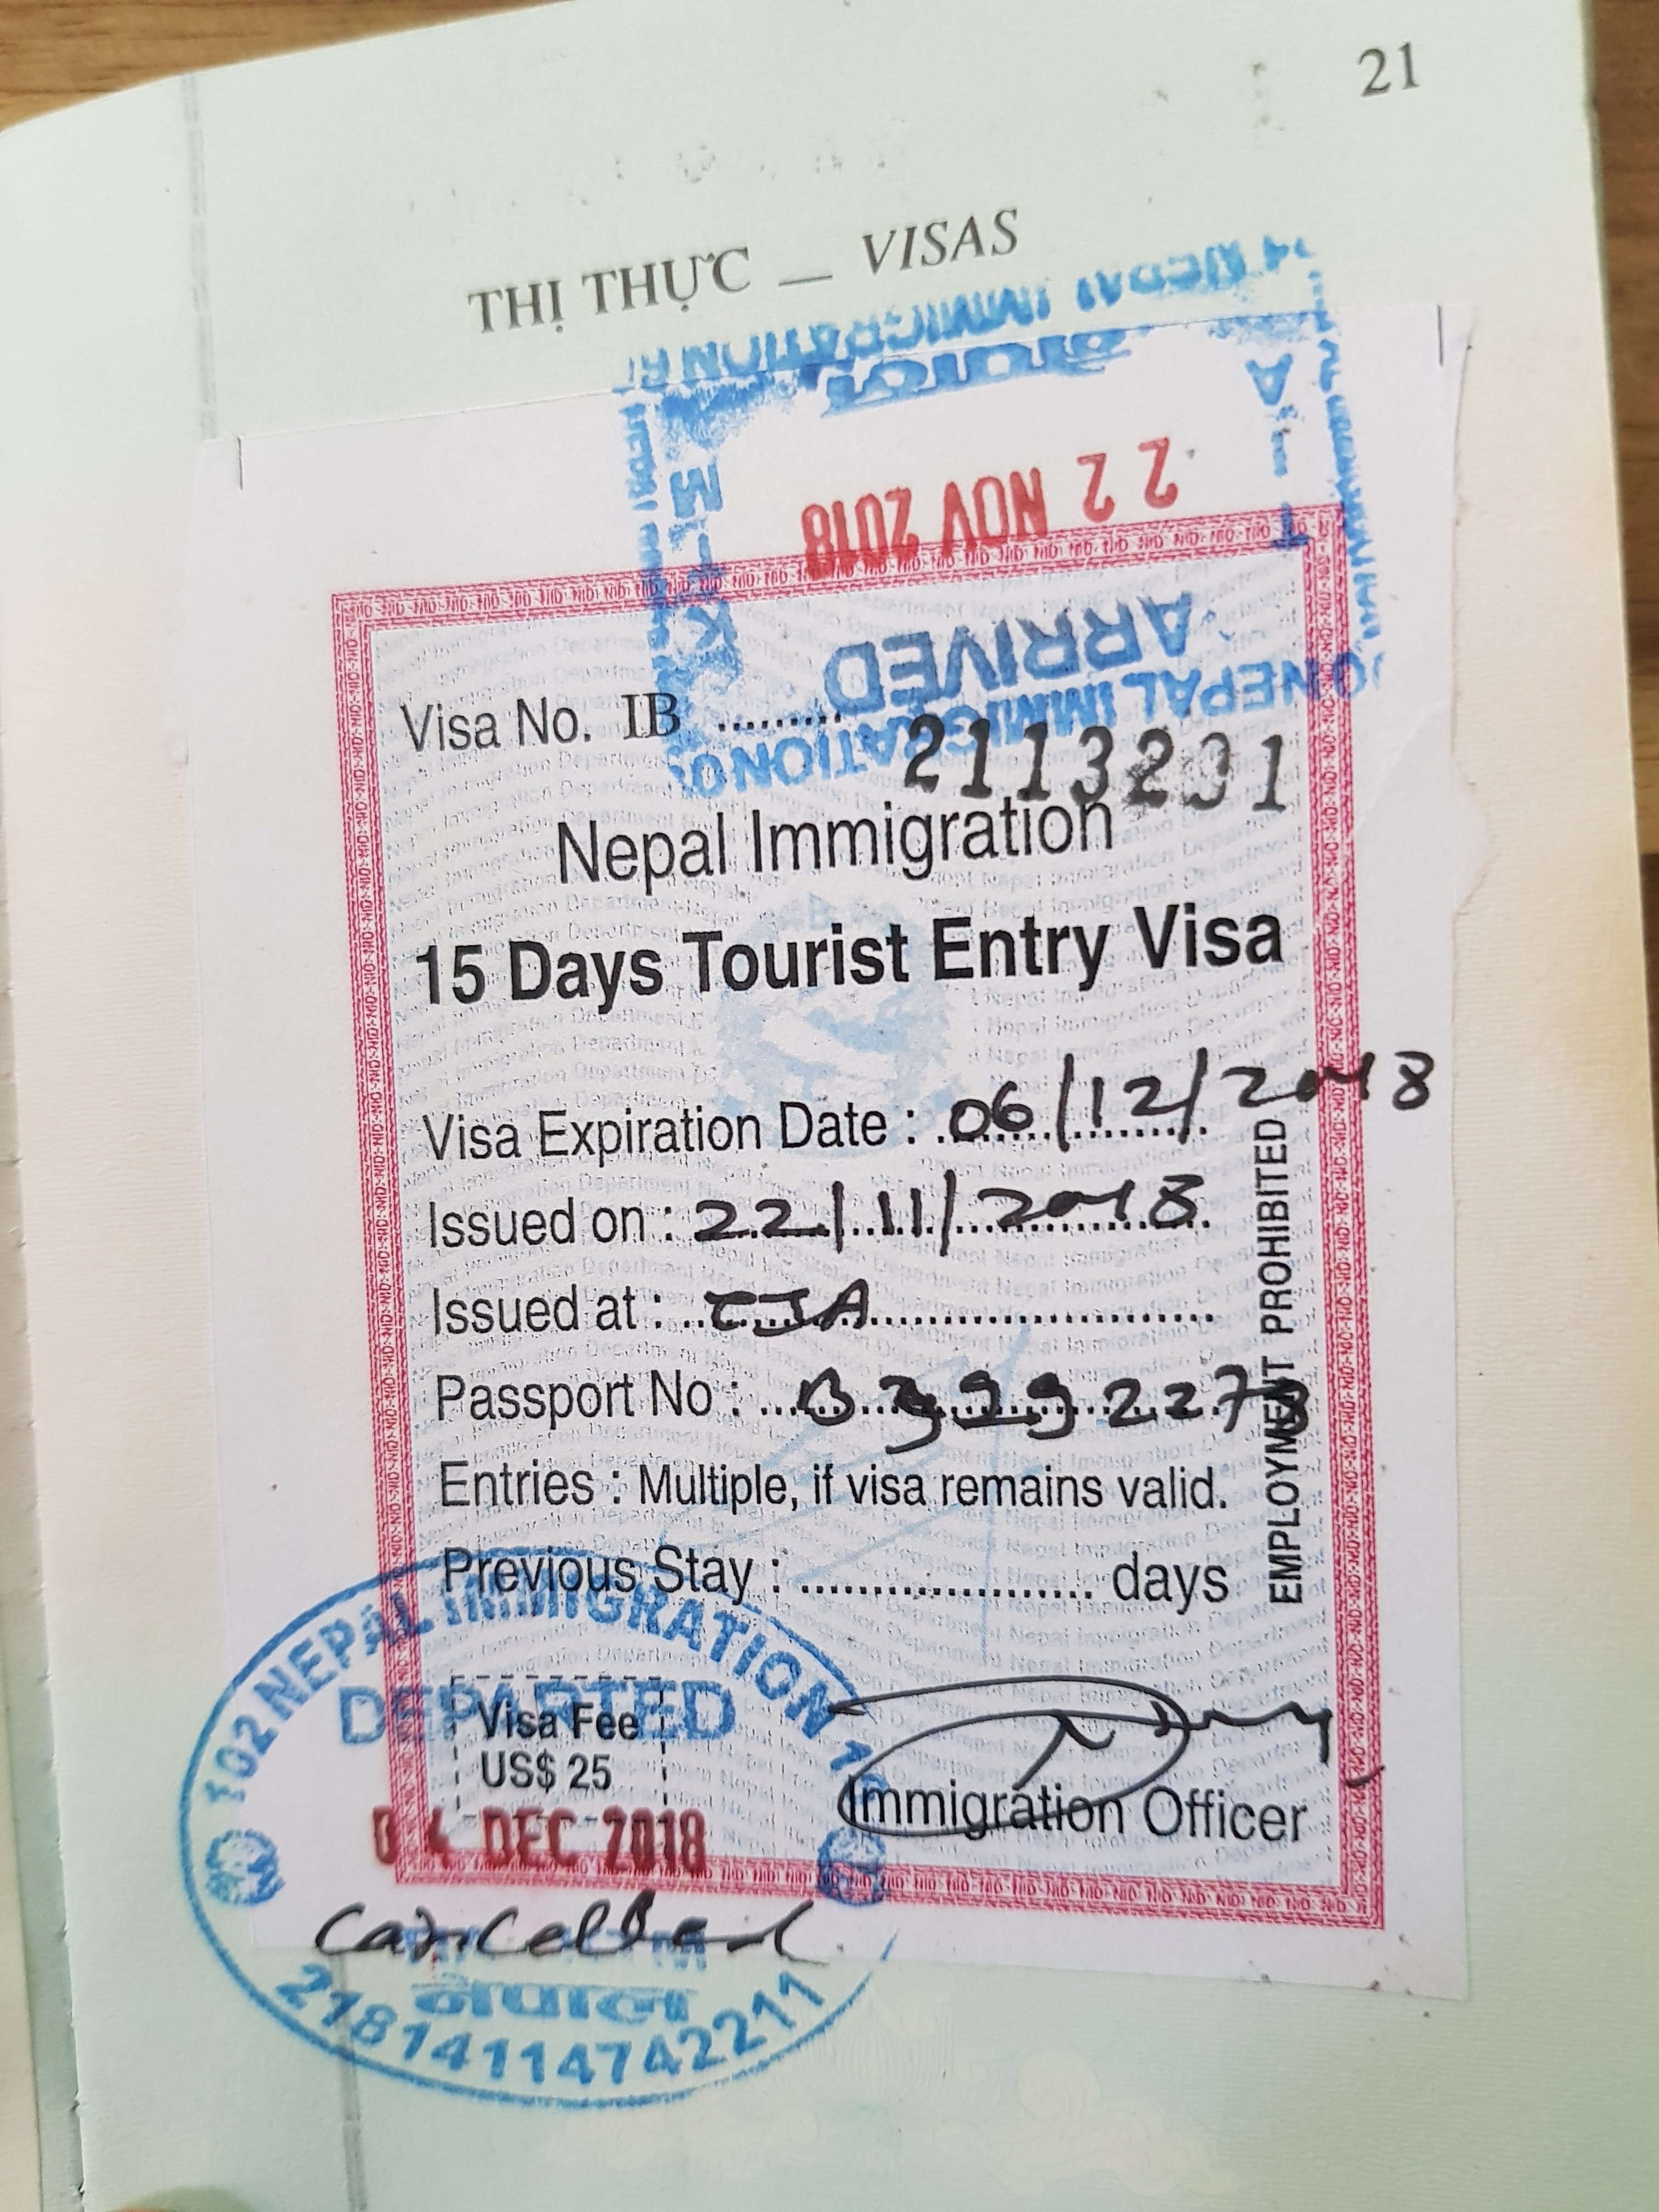 21
THỊ THỰC _ VISAS
NEPAL IMMIGRATION
22 NOV 2018
ARRIVED
NEPAL IMMIGRATION
Visa No. IB .........
2113201
Nepal Immigration
15 Days Tourist Entry Visa
Visa Expiration Date : 06/12/2018
Issued on : 22/11/2018
Issued at : TIA
Passport No :
Entries : Multiple, if visa remains valid.
Previous Stay : ..................... days
EMPLOYMENT PROHIBITED
102 NEPAL IMMIGRATION
DEPARTED
Visa Fee
US$ 25
04 DEC 2018
Immigration Officer
cancelled
नेपाल
21814114742211